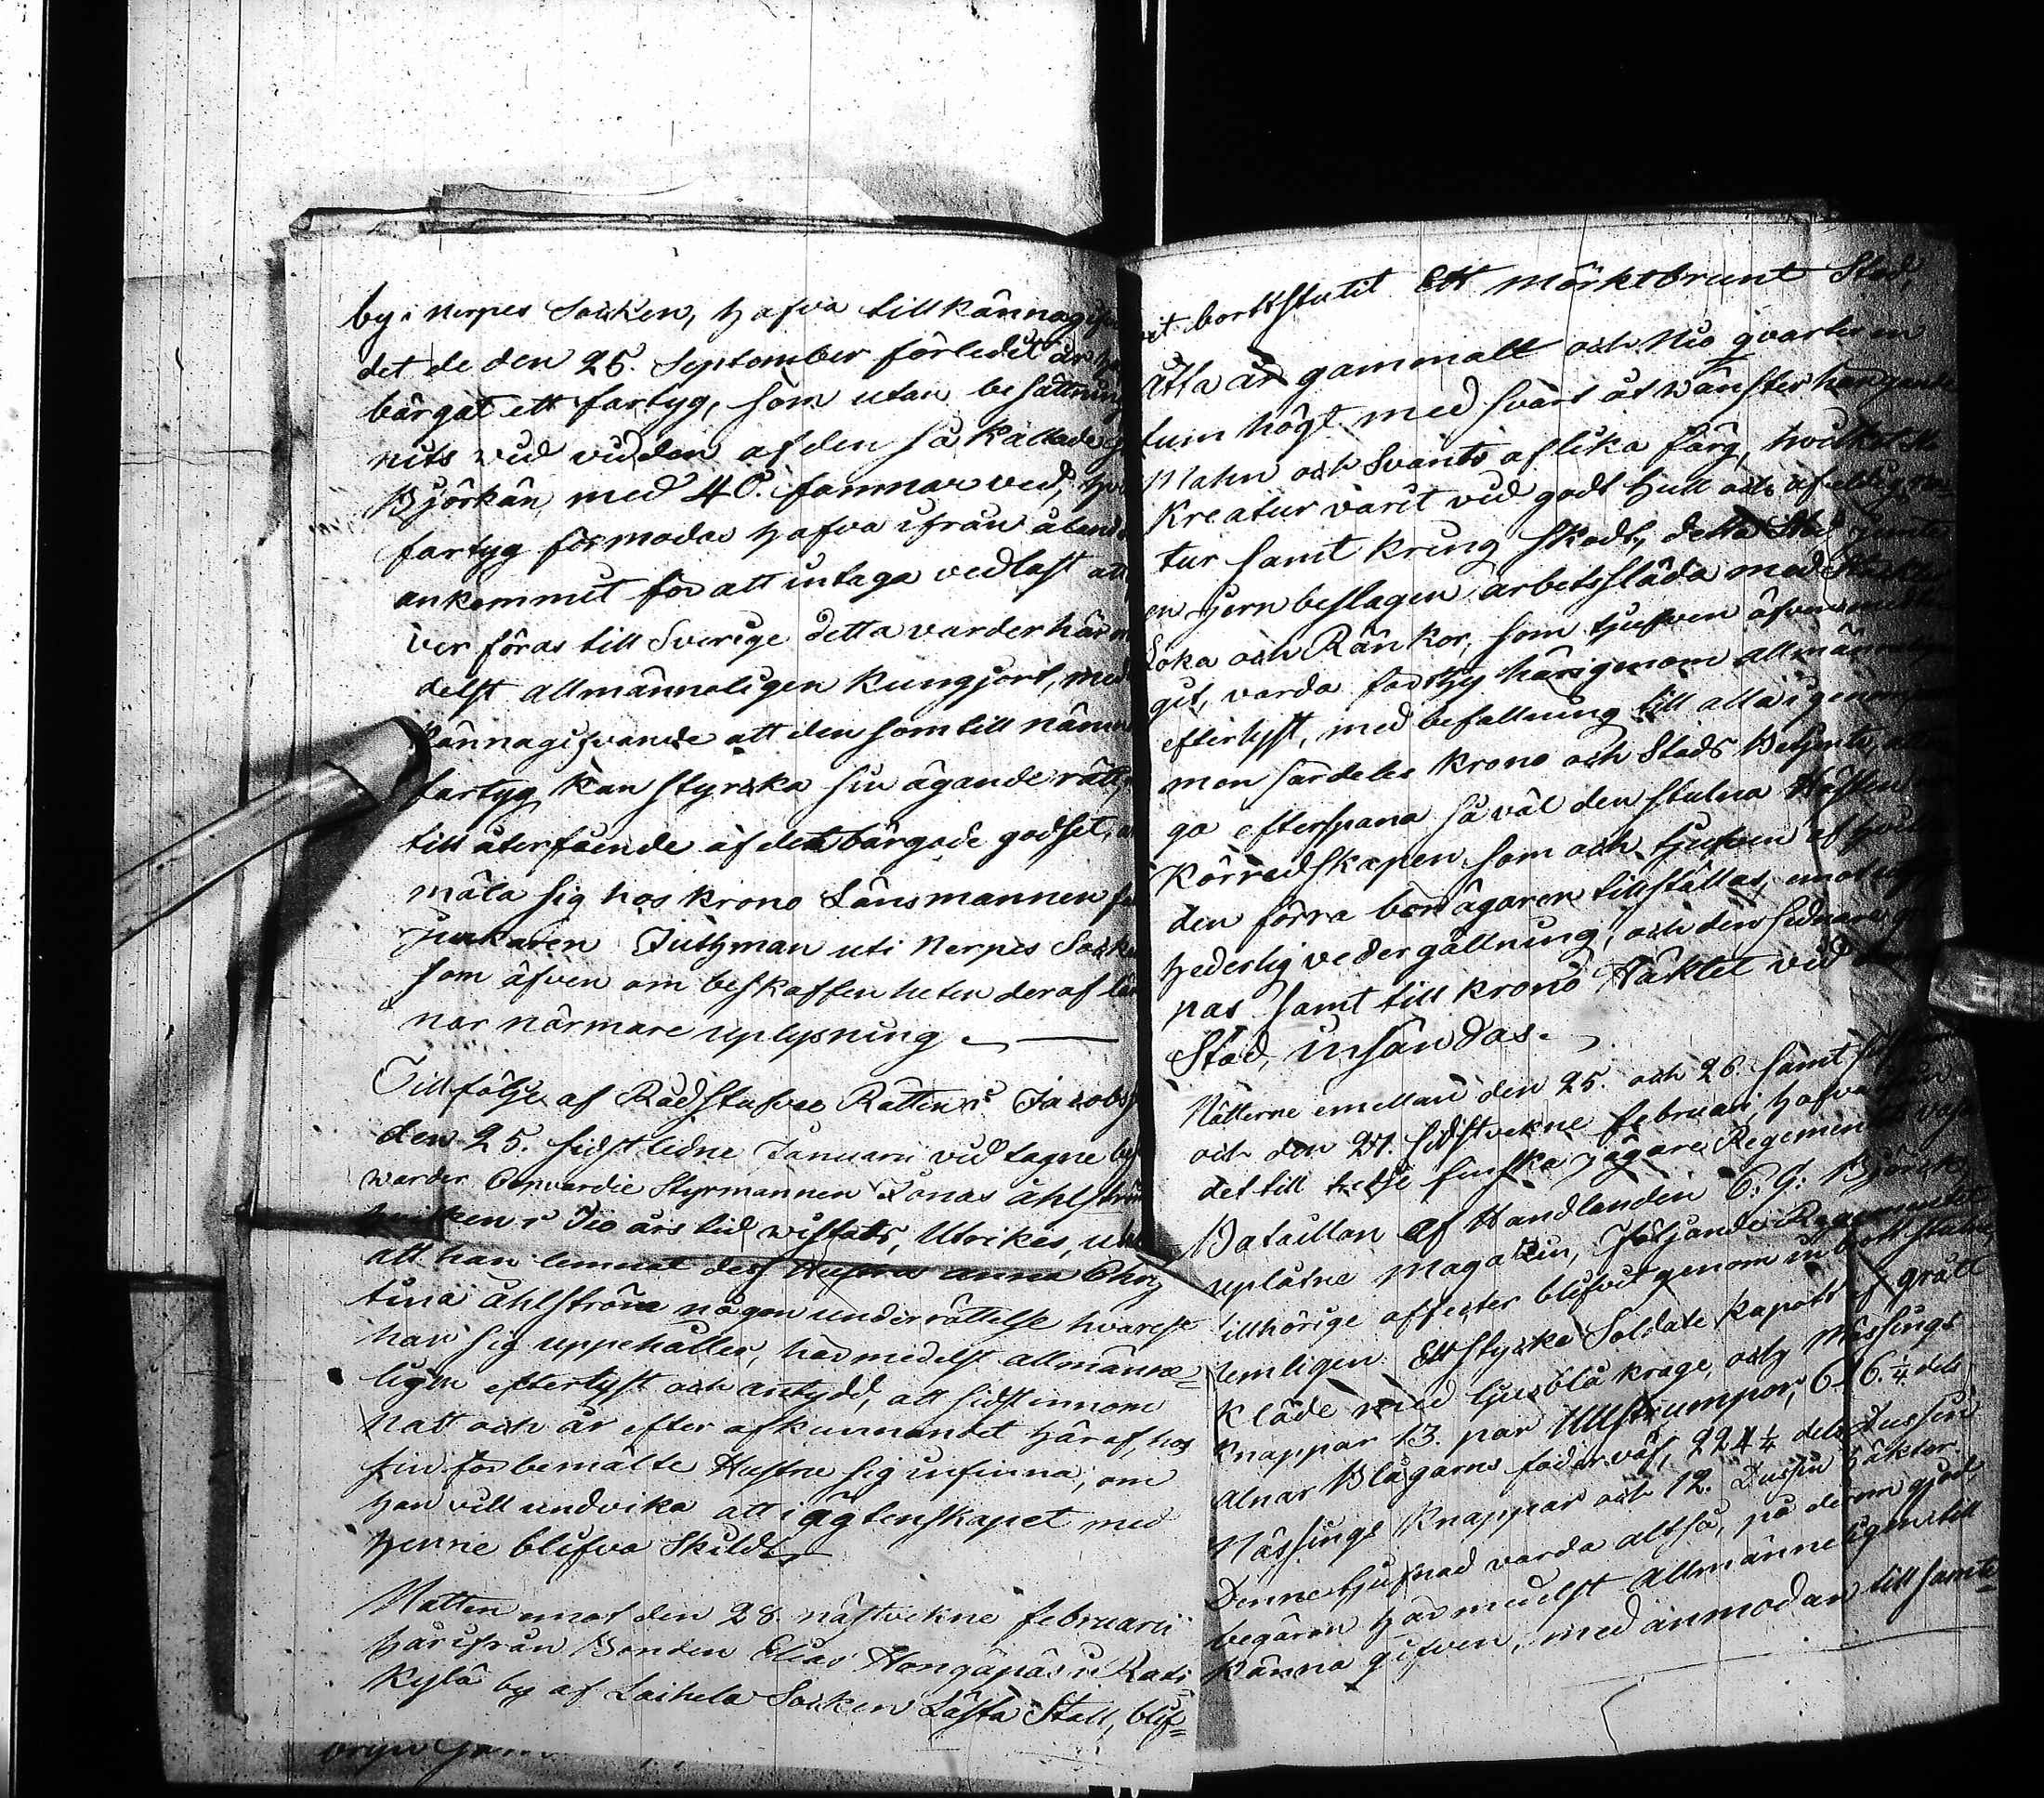 by i Nerpes Socken, hafva tillkännagif
det de den 25. September förledit år
bärgat ett fartyg, som utan besättning
nits vid vidden af den så kallade
Björkän, med 40. famnar ved,
fartyg förmodas hafva ifrån åland
ankommit för att intaga vedlast att
ver föras till Sverige detta varder härm
delst allmänneligen kungjort, med
kännagifvande att den som till nämn
fartyg kan styrka sin ägande rätt
till återfående af det bärgade godset,
mäla sig hos Krono Länsmannen
junkaren Juthman uti Nerpes Socken
som äfven om beskaffenheten deraf läm
nar närmare uplysning.
Till följe af Rådstufvu Rättens i Jacobs
den 25. sidstledne Januarii vidtagne be
varder Coopvardie Styrmannen Jonas Åhlström
hvilken i Tio års tid wistats Utrikes, utan
att han lemnat dess Hustru Anna Chris
tina Åhlström någon underrättelse hvarest
han sig uppehåller, härmedelst allmänne=
ligen efterlyst och antydd, att sidst innom
natt och år efter afkunnandet häraf, hos
sin förbemälte Hustru sig infinna, om
han vill undvika att i ägtenskapet med
henne blifva Skild.
Natten emot den 28. nästvikne februarii
härifrån Bonden Elias Hongapäs i Rati
Kylä by af Laihela Socken Låsta Stall, blif=
vit bortstulit Ett Mörktbrunt Stod,
Åtta år gammalt och Nio qvarter en
tum högt med svart åt wänster hängande
Mahn och Svants af lika färg, hvilket
Kreatur varit vid godt hull och af eldig na
tur samt kring skodt, detta Stod jemte
en jern beslagen arbetssläda med
Loka och Ränkor, som tjufven äfven
git, varda forthy härigenom allmänneligen
efterlyst, med befallning till alla i gemen,
men särdeles Krono och Stads Betjente, at
ga efterspana så väl den stulna Hästen
Körredskapen som och tjufven af hvilka
den förra bör ägaren tillställas, emot
hederlig vedergällning, och den sednare gri
pas samt till Krono Häktet vid denna
Stad, insändas.
Nätterne emellan den 25. och 26. samt
och den 27. sidstvekne februari, hafva
det till tredje finska Jägare Regementet
Bataillon af Handlanden C: G: Björck
uplåtne Magazin, följande Regementet
tillhörige effecter blifvit genom inbrott stulne,
nemligen: Ett stycke Soldate kapott af grått
Kläde med ljusblå krage, och Mässings
Knappar 13. par Ullstrumpor, 616. ¼ dels
alnar Blågarns foder väf, 224 ¼ dels Dussin
Mässings Knappar och 12. Dussin häktor
Denne tjufnad varda altså, på derom gjord
begäran härmedelst Allmänneligen till
känna gifven, med anmodan till samte=